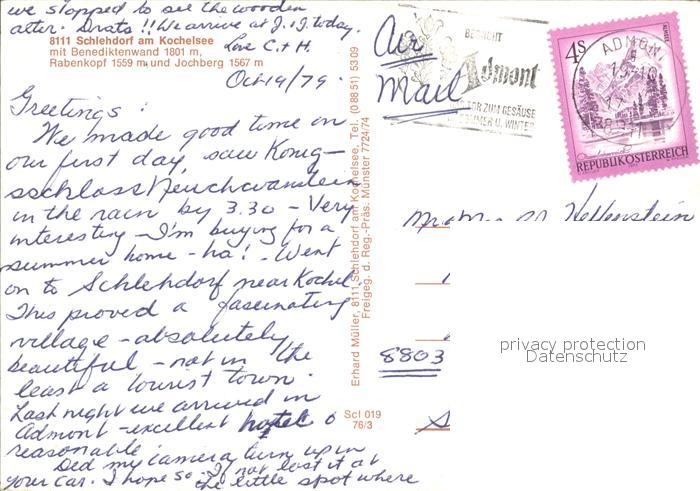 we stopped to see the wooden
alter. Drats!! We arrive at J.I. today.
Love C. + H.
8111 Schlehdorf am Kochelsee
mit Benediktenwand 1801 m,
Rabenkopf 1559 m und Jochberg 1567 m
Oct 19/79.
Greetings!
We made good time on
our first day, saw König-
sschloss Neuchwanstein
in the rain by 3.30 - Very
interesting - I'm buying for a
summer home - ha! - Went
on to Schlehdorf near Kochel.
This proved a fascinating
village - absolutely
beautiful - not in the
least a tourist town.
Last night we arrived in
Admont - excellent hotel
reasonable
Did my camera turn up in
your car. I hope so. If not lost it at
the little spot where
Erhard Müller, 8111 Schlehdorf am Kochelsee, Tel. (0 88 51) 53 09
Freigeg. d. Reg.-Präs. Münster 7724/74
Scl 019
76/3
Air
Mail
BESUCHT
Admont
TOR ZUM GESÄUSE
SOMMER U. WINTER
ADMONT
4S
REPUBLIK ÖSTERREICH
Hellenstein
8803
privacy protection
Datenschutz